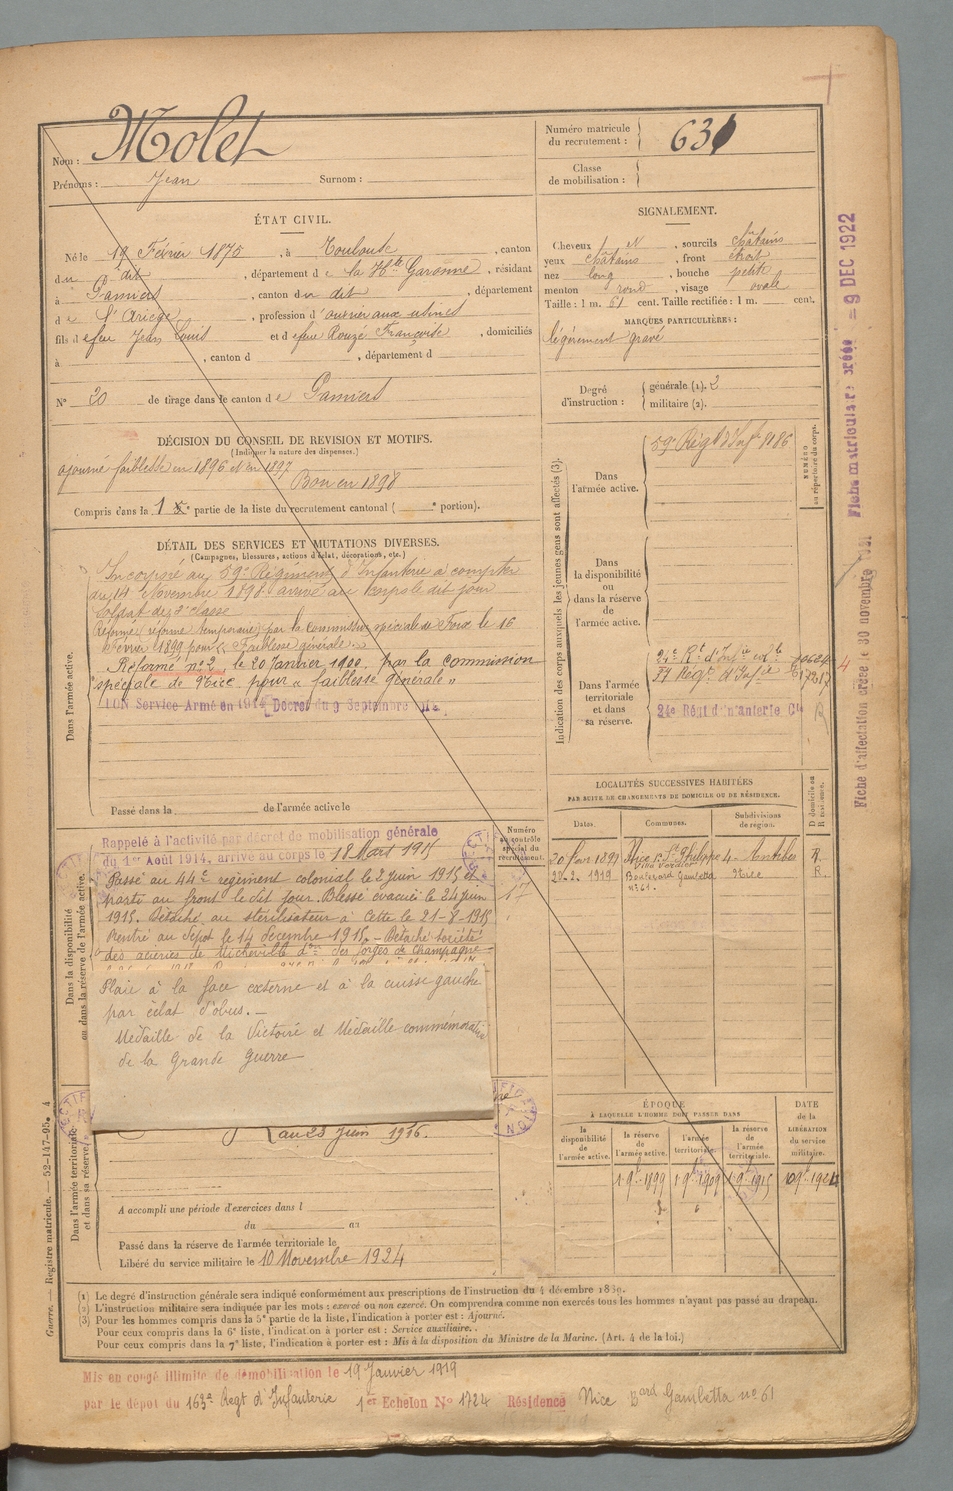 Nom : Molet
Prénoms : Jean Surnom :
Numéro matricule du recrutement : 631
Classe de mobilisation :
ÉTAT CIVIL.
Né le 19 Février 1875, à Toulouse, canton
du dit, département de la Hte Garonne, résidant
à Pamiers, canton du dit, département
de l'Ariège, profession d'ouvrier aux usines
fils de feu Jean Louis et de feue Rouzé Françoise, domiciliés
à , canton d , département d
N° 20 de tirage dans le canton de Pamiers
SIGNALEMENT.
Cheveux N, sourcils châtains
yeux châtains, front étroit
nez long, bouche petite
menton rond, visage ovale
Taille : 1 m. 61 cent. Taille rectifiée : 1 m. cent.
MARQUES PARTICULIÈRES :
légèrement gravé
Degré d'instruction : générale (1). 2
militaire (2).
DÉCISION DU CONSEIL DE REVISION ET MOTIFS.
(Indiquer la nature des dispenses.)
ajourné faiblesse en 1896 et en 1897
Bon en 1898
Compris dans la 1e partie de la liste du recrutement cantonal ( e portion).
DÉTAIL DES SERVICES ET MUTATIONS DIVERSES.
(Campagnes, blessures, actions d'éclat, décorations, etc.)
Dans l'armée active.
Incorporé au 59e Régiment d'Infanterie à compter
du 14 Novembre 1898 arrivé au corps le dit jour
Soldat de 2e classe
Réformé (réforme temporaire) par la commission spéciale de Foix le 16
Février 1899 pour « Faiblesse générale »
Réformé n°2, le 20 Janvier 1900, par la commission
spéciale de Nice pour « faiblesse générale »
BON Service Armé en 1914 Décret du 9 Septembre 1914
Passé dans la de l'armée active le
Indication des corps auxquels les jeunes gens sont affectés (3).
NUMÉRO au répertoire du corps.
Dans l'armée active.
59e Régt d'Infie 8186
Dans la disponibilité ou dans la réserve de l'armée active.
Dans l'armée territoriale et dans sa réserve.
24e Rt d'Infie colle
Régt d'Infie
24e Régt d'Infanterie Cle
LOCALITÉS SUCCESSIVES HABITÉES
PAR SUITE DE CHANGEMENTS DE DOMICILE OU DE RÉSIDENCE.
Dates. Communes. Subdivisions de région. D domicile ou R résidence.
20 Févr 1899 Nice r. St Philippe 4 Antibes R.
Villa Verdier
28.2.1919 Boulevard Gambetta Nice R.
n° 61.
Dans la disponibilité ou dans la réserve de l'armée active.
Numéro au contrôle spécial du recrutement.
17
Rappelé à l'activité par décret de mobilisation générale
du 1er Août 1914, arrivé au corps le 18 Mars 1915
Passé au 44e régiment colonial le 2 juin 1915 et
parti au front le dit jour. Blessé évacué le 24 juin
1915. Détaché au stérilisateur à Cette le 21-8-1915
Rentré au dépôt le 14 décembre 1915. - Détaché société
des aciéries de Micheville don des forges de Champagne
Plaie à la face externe et à la cuisse gauche
par éclat d'obus. -
Médaille de la Victoire et Médaille commémorative
de la Grande Guerre
Dans l'armée territoriale et dans sa réserve.
au 23 juin 1916.
A accompli une période d'exercices dans l
du au
Passé dans la réserve de l'armée territoriale le
Libéré du service militaire le 10 Novembre 1924
ÉPOQUE
À LAQUELLE L'HOMME DOIT PASSER DANS
la disponibilité de l'armée active.
la réserve de l'armée active.
l'armée territoriale.
la réserve de l'armée territoriale.
DATE de la LIBÉRATION du service militaire.
1.9bre 1899 1.9bre 1909 1.9bre 1915 10 9bre 1924
(1) Le degré d'instruction générale sera indiqué conformément aux prescriptions de l'instruction du 4 décembre 1889.
(2) L'instruction militaire sera indiquée par les mots : exercé ou non exercé. On comprendra comme non exercés tous les hommes n'ayant pas passé au drapeau.
(3) Pour les hommes compris dans la 5e partie de la liste, l'indication à porter est : Ajourné.
Pour ceux compris dans la 6e liste, l'indication à porter est : Service auxiliaire.
Pour ceux compris dans la 7e liste, l'indication à porter est : Mis à la disposition du Ministre de la Marine. (Art. 4 de la loi.)
Mis en congé illimité de démobilisation le 19 Janvier 1919
par le dépôt du 163e Regt d'Infanterie 1er Echelon N° 1724 Résidence Nice Bard Gambetta n° 61
Guerre. — Registre matricule. — 52-147-95. 4
Fiche matriculaire créée - 9 DEC 1922
Fiche d'affectation créée le 30 novembre